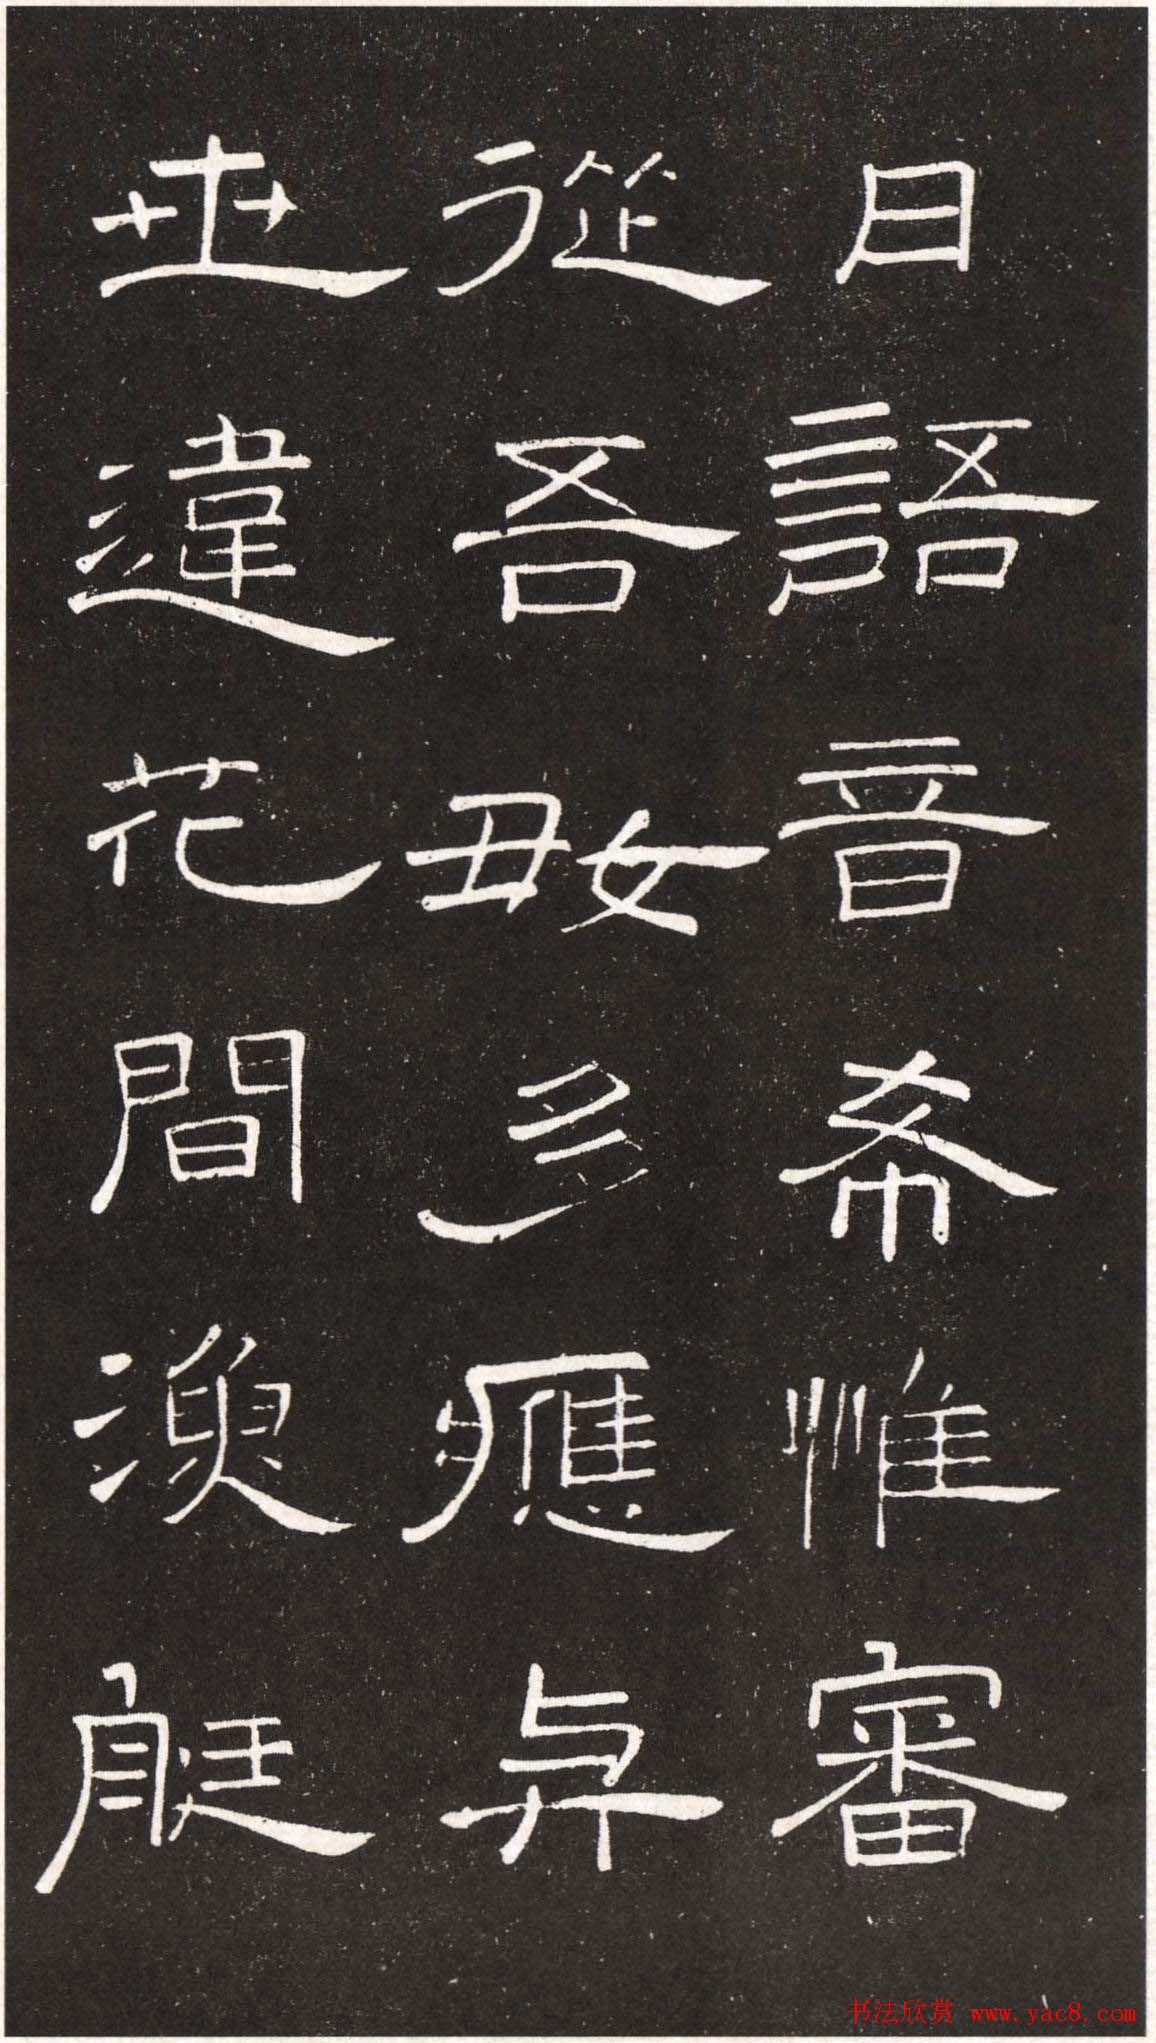 日語音希惟審
從吾好多應與
世違花間漁艇
书法欣赏 www.yac8.com